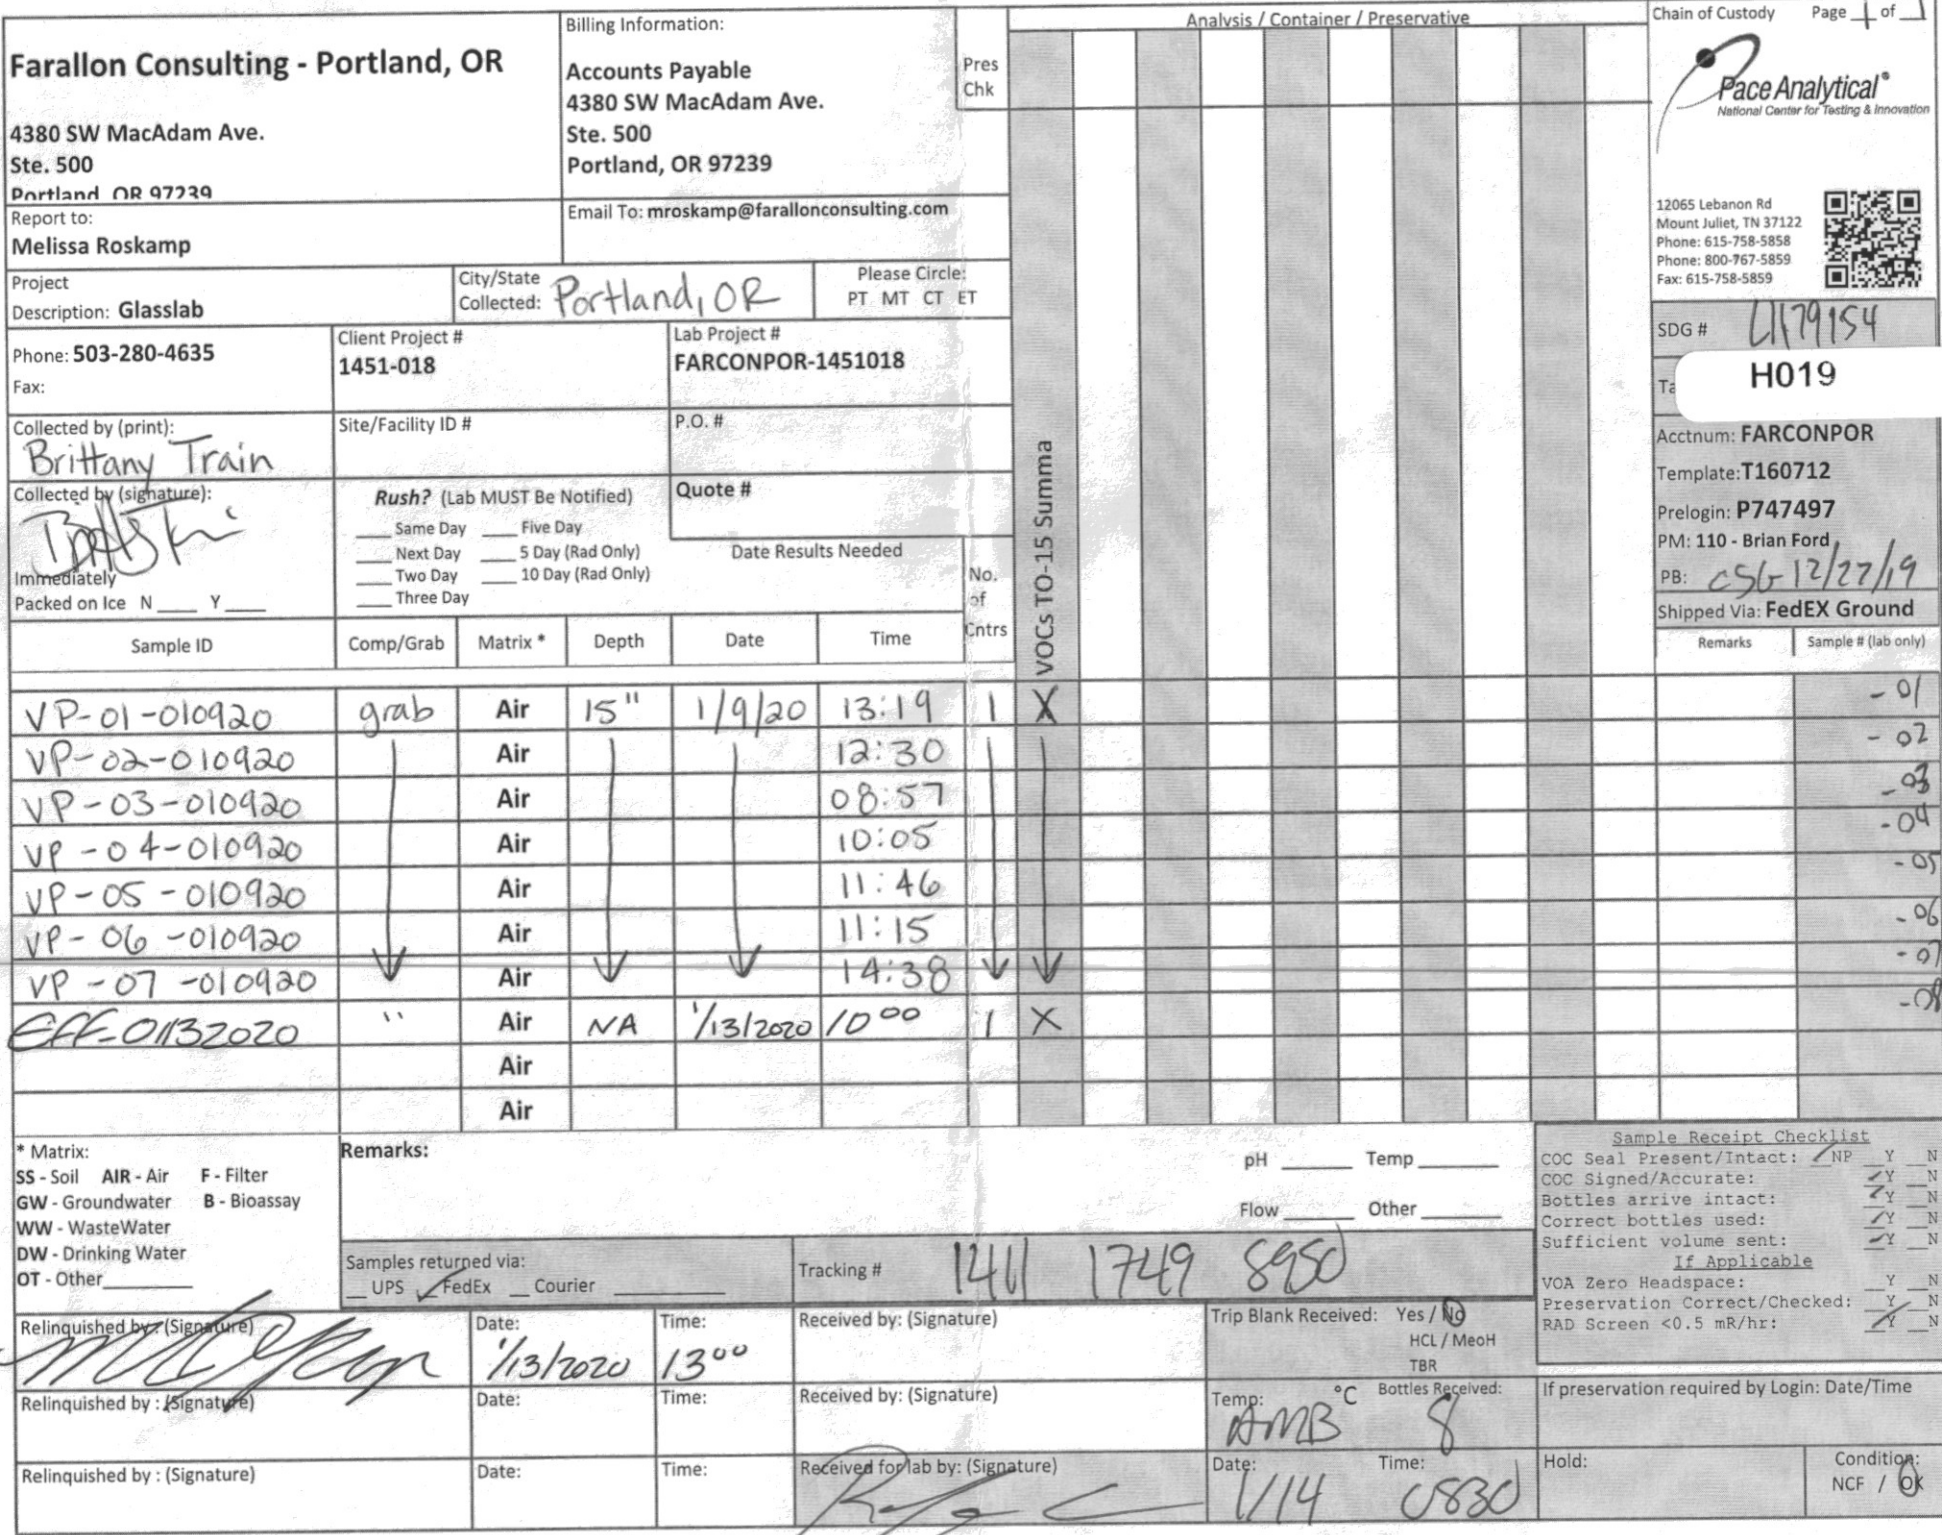 Farallon Consulting - Portland, OR
4380 SW MacAdam Ave.
Ste. 500
Portland, OR 97239
Billing Information:
Accounts Payable
4380 SW MacAdam Ave.
Ste. 500
Portland, OR 97239
Pres
Chk
Analysis / Container / Preservative
Chain of Custody Page 1 of 1
Pace Analytical®
National Center for Testing & Innovation
12065 Lebanon Rd
Mount Juliet, TN 37122
Phone: 615-758-5858
Phone: 800-767-5859
Fax: 615-758-5859
Report to:
Melissa Roskamp
Email To: mroskamp@farallonconsulting.com
Project
Description: Glasslab
City/State
Collected: Portland, OR
Please Circle:
PT MT CT ET
Phone: 503-280-4635
Fax:
Client Project #
1451-018
Lab Project #
FARCONPOR-1451018
SDG # L1179154
H019
Ta
Collected by (print):
Brittany Train
Site/Facility ID #
P.O. #
Acctnum: FARCONPOR
Template: T160712
Prelogin: P747497
PM: 110 - Brian Ford
PB: CSG 12/27/19
Shipped Via: FedEX Ground
Collected by (signature):
Immediately
Packed on Ice N ____ Y ____
Rush? (Lab MUST Be Notified)
___ Same Day ___ Five Day
___ Next Day ___ 5 Day (Rad Only)
___ Two Day ___ 10 Day (Rad Only)
___ Three Day
Quote #
Date Results Needed
No.
of
Cntrs
VOCs TO-15 Summa
Sample ID Comp/Grab Matrix * Depth Date Time Remarks Sample # (lab only)
VP-01-010920 grab Air 15" 1/9/20 13:19 1 X -01
VP-02-010920 Air 12:30 -02
VP-03-010920 Air 08:57 -03
VP-04-010920 Air 10:05 -04
VP-05-010920 Air 11:46 -05
VP-06-010920 Air 11:15 -06
VP-07-010920 Air 14:38 -07
EFF-01132020 " Air NA 1/13/2020 10 00 1 X -08
Air
Air
* Matrix:
SS - Soil AIR - Air F - Filter
GW - Groundwater B - Bioassay
WW - WasteWater
DW - Drinking Water
OT - Other
Remarks:
pH ______ Temp ______
Flow ______ Other ______
Samples returned via:
__ UPS ✓ FedEx __ Courier
Tracking # 1411 1749 8950
Sample Receipt Checklist
COC Seal Present/Intact: ✓NP _Y _N
COC Signed/Accurate: ✓Y _N
Bottles arrive intact: ✓Y _N
Correct bottles used: ✓Y _N
Sufficient volume sent: ✓Y _N
If Applicable
VOA Zero Headspace: _Y _N
Preservation Correct/Checked: _Y _N
RAD Screen <0.5 mR/hr: ✓Y _N
Relinquished by : (Signature)
Date: 1/13/2020
Time: 13 00
Received by: (Signature)
Trip Blank Received: Yes / No
HCL / MeoH
TBR
Relinquished by : (Signature)
Date:
Time:
Received by: (Signature)
Temp: AMB °C
Bottles Received: 8
If preservation required by Login: Date/Time
Relinquished by : (Signature)
Date:
Time:
Received for lab by: (Signature)
Date: 1/14
Time: 0830
Hold:
Condition:
NCF / OK